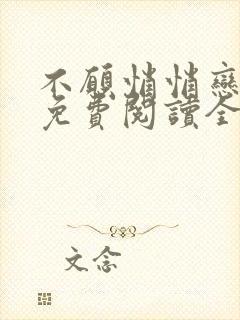 不願悄悄戀
免費閱讀全
文念